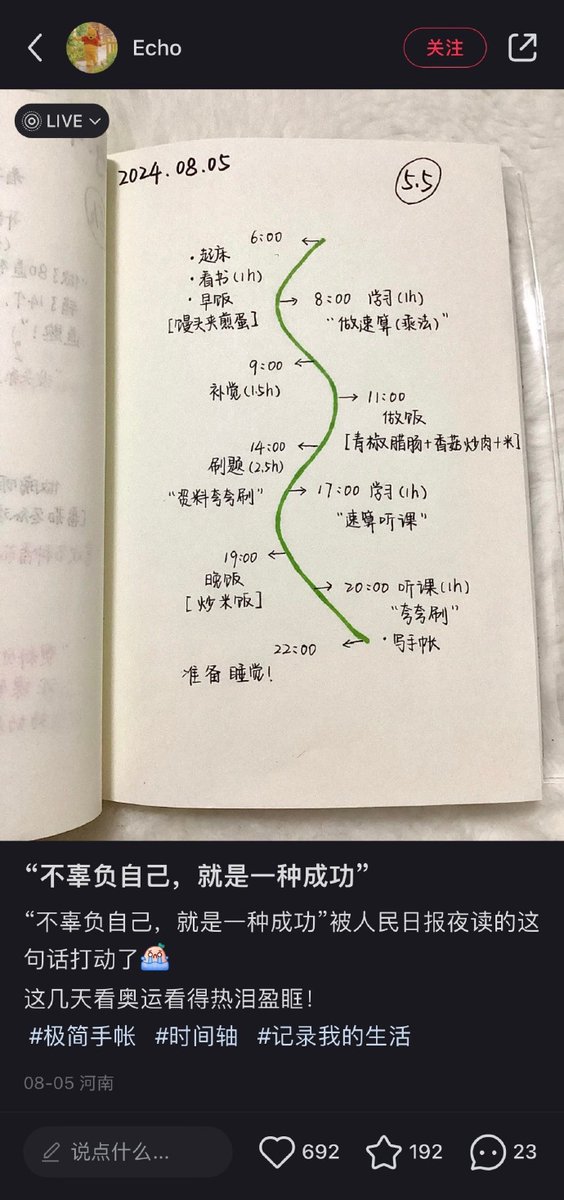 Echo
关注
LIVE
2024.08.05
5.5
6:00
·起床
·看书(1h)
·早饭
[馒头夹煎蛋]
8:00 学习(1h)
“做速算(乘法)”
9:00
补觉(1.5h)
11:00
做饭
[青椒腊肠+香菇炒肉+米]
14:00
刷题(2.5h)
“资料夸夸刷”
17:00 学习(1h)
“速算听课”
19:00
晚饭
[炒米饭]
20:00 听课(1h)
“夸夸刷”
·写手帐
22:00
准备睡觉!
“不辜负自己，就是一种成功”
“不辜负自己，就是一种成功”被人民日报夜读的这
句话打动了
这几天看奥运看得热泪盈眶！
#极简手帐 #时间轴 #记录我的生活
08-05 河南
说点什么...
692
192
23